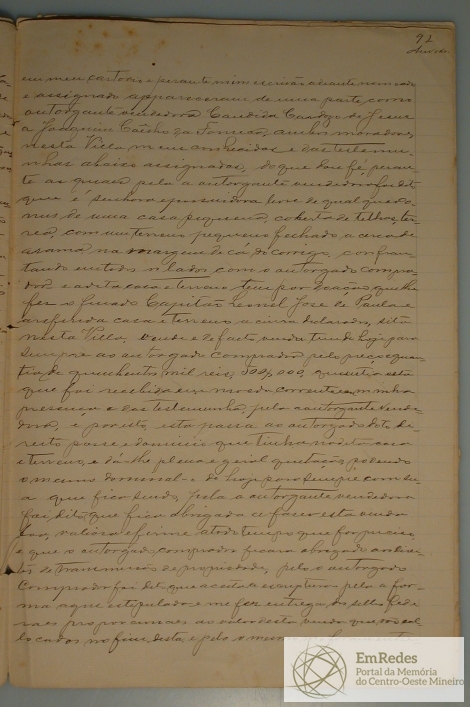 92
em meu cartorio e perante mim escrivão adiante nomeado
e assignado appareceram de uma parte, como
outorgante vendedora Candida Candida de Jesus
a Joaquim Caetano da Fonseca, ambos moradores
nesta Villa, meus conhecidos e das testemu-
nhas abaixo assignadas, do que dou fé peran-
te as quaes pela a outorgante vendedora foi dito
que é senhora e possuidora livre de qualquer o
nus de uma casa pequena, coberta de telhas, ter-
rea, com um terreno pequeno fechado a cerca de
arame na margem de cá do corrego, confron-
tando em todos os lados com o outorgado compra
dor e a dita casa e terreno teve por doação que lhe
fez o finado Capitão Leonel José de Paula e
a referida casa e terreno acima declarados, sitos
nesta Villa, vende e de facto vendido tem de hoje para
sempre ao outorgado comprador pelo preço e quan-
tia de quinhentos mil reis, 500$000, quantia esta
que foi recebida em moeda corrente em minha
presença e das testemunhas, pela outorgante vende-
dora, e por isto, esta passa ao outorgado todo di-
reito posse e dominio que tinha na dita casa
e terreno, e dá-lhe plena e geral quitação, podendo
o mesmo de hoje para sempre
a que fica sendo. Pela a outorgante vendedora
foi dito que fica obrigada a fazer esta venda
boa, valiosa e firme a todo tempo que for preciso,
e que o outorgado comprador ficará obrigado
de transmissão de propriedade, pelo o outorgado
comprador foi dito que aceita a escriptura pela a for-
ma aqui estipulada e me fez entrega dos sellos fede
raes proporcionaes ao valor desta venda que vão col-
locados no fim desta, e pelo o mesmo
EmRedes
Portal da Memória
do Centro-Oeste Mineiro